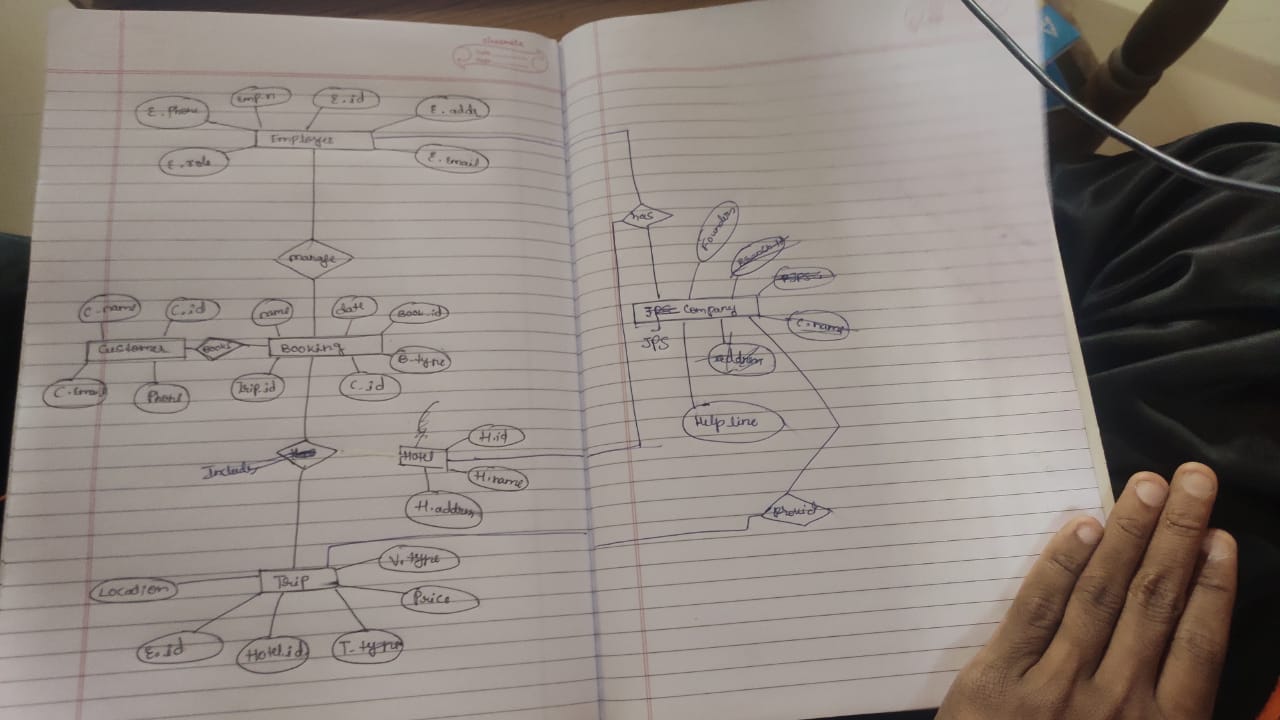 classmate
Date
Page
E.Phone
Emp.n
E.id
E.addr
Employee
E.role
E.email
manage
C.name
C.id
name
date
Book.id
Customer
Books
Booking
B-type
C.Email
Phone
Trip.id
C.id
Includ
Hotel
H.id
H.name
H.address
Trip
V.type
Location
Price
E.id
Hotel.id
T-type
has
Founder
Company
C.name
JPS
address
Help line
provid